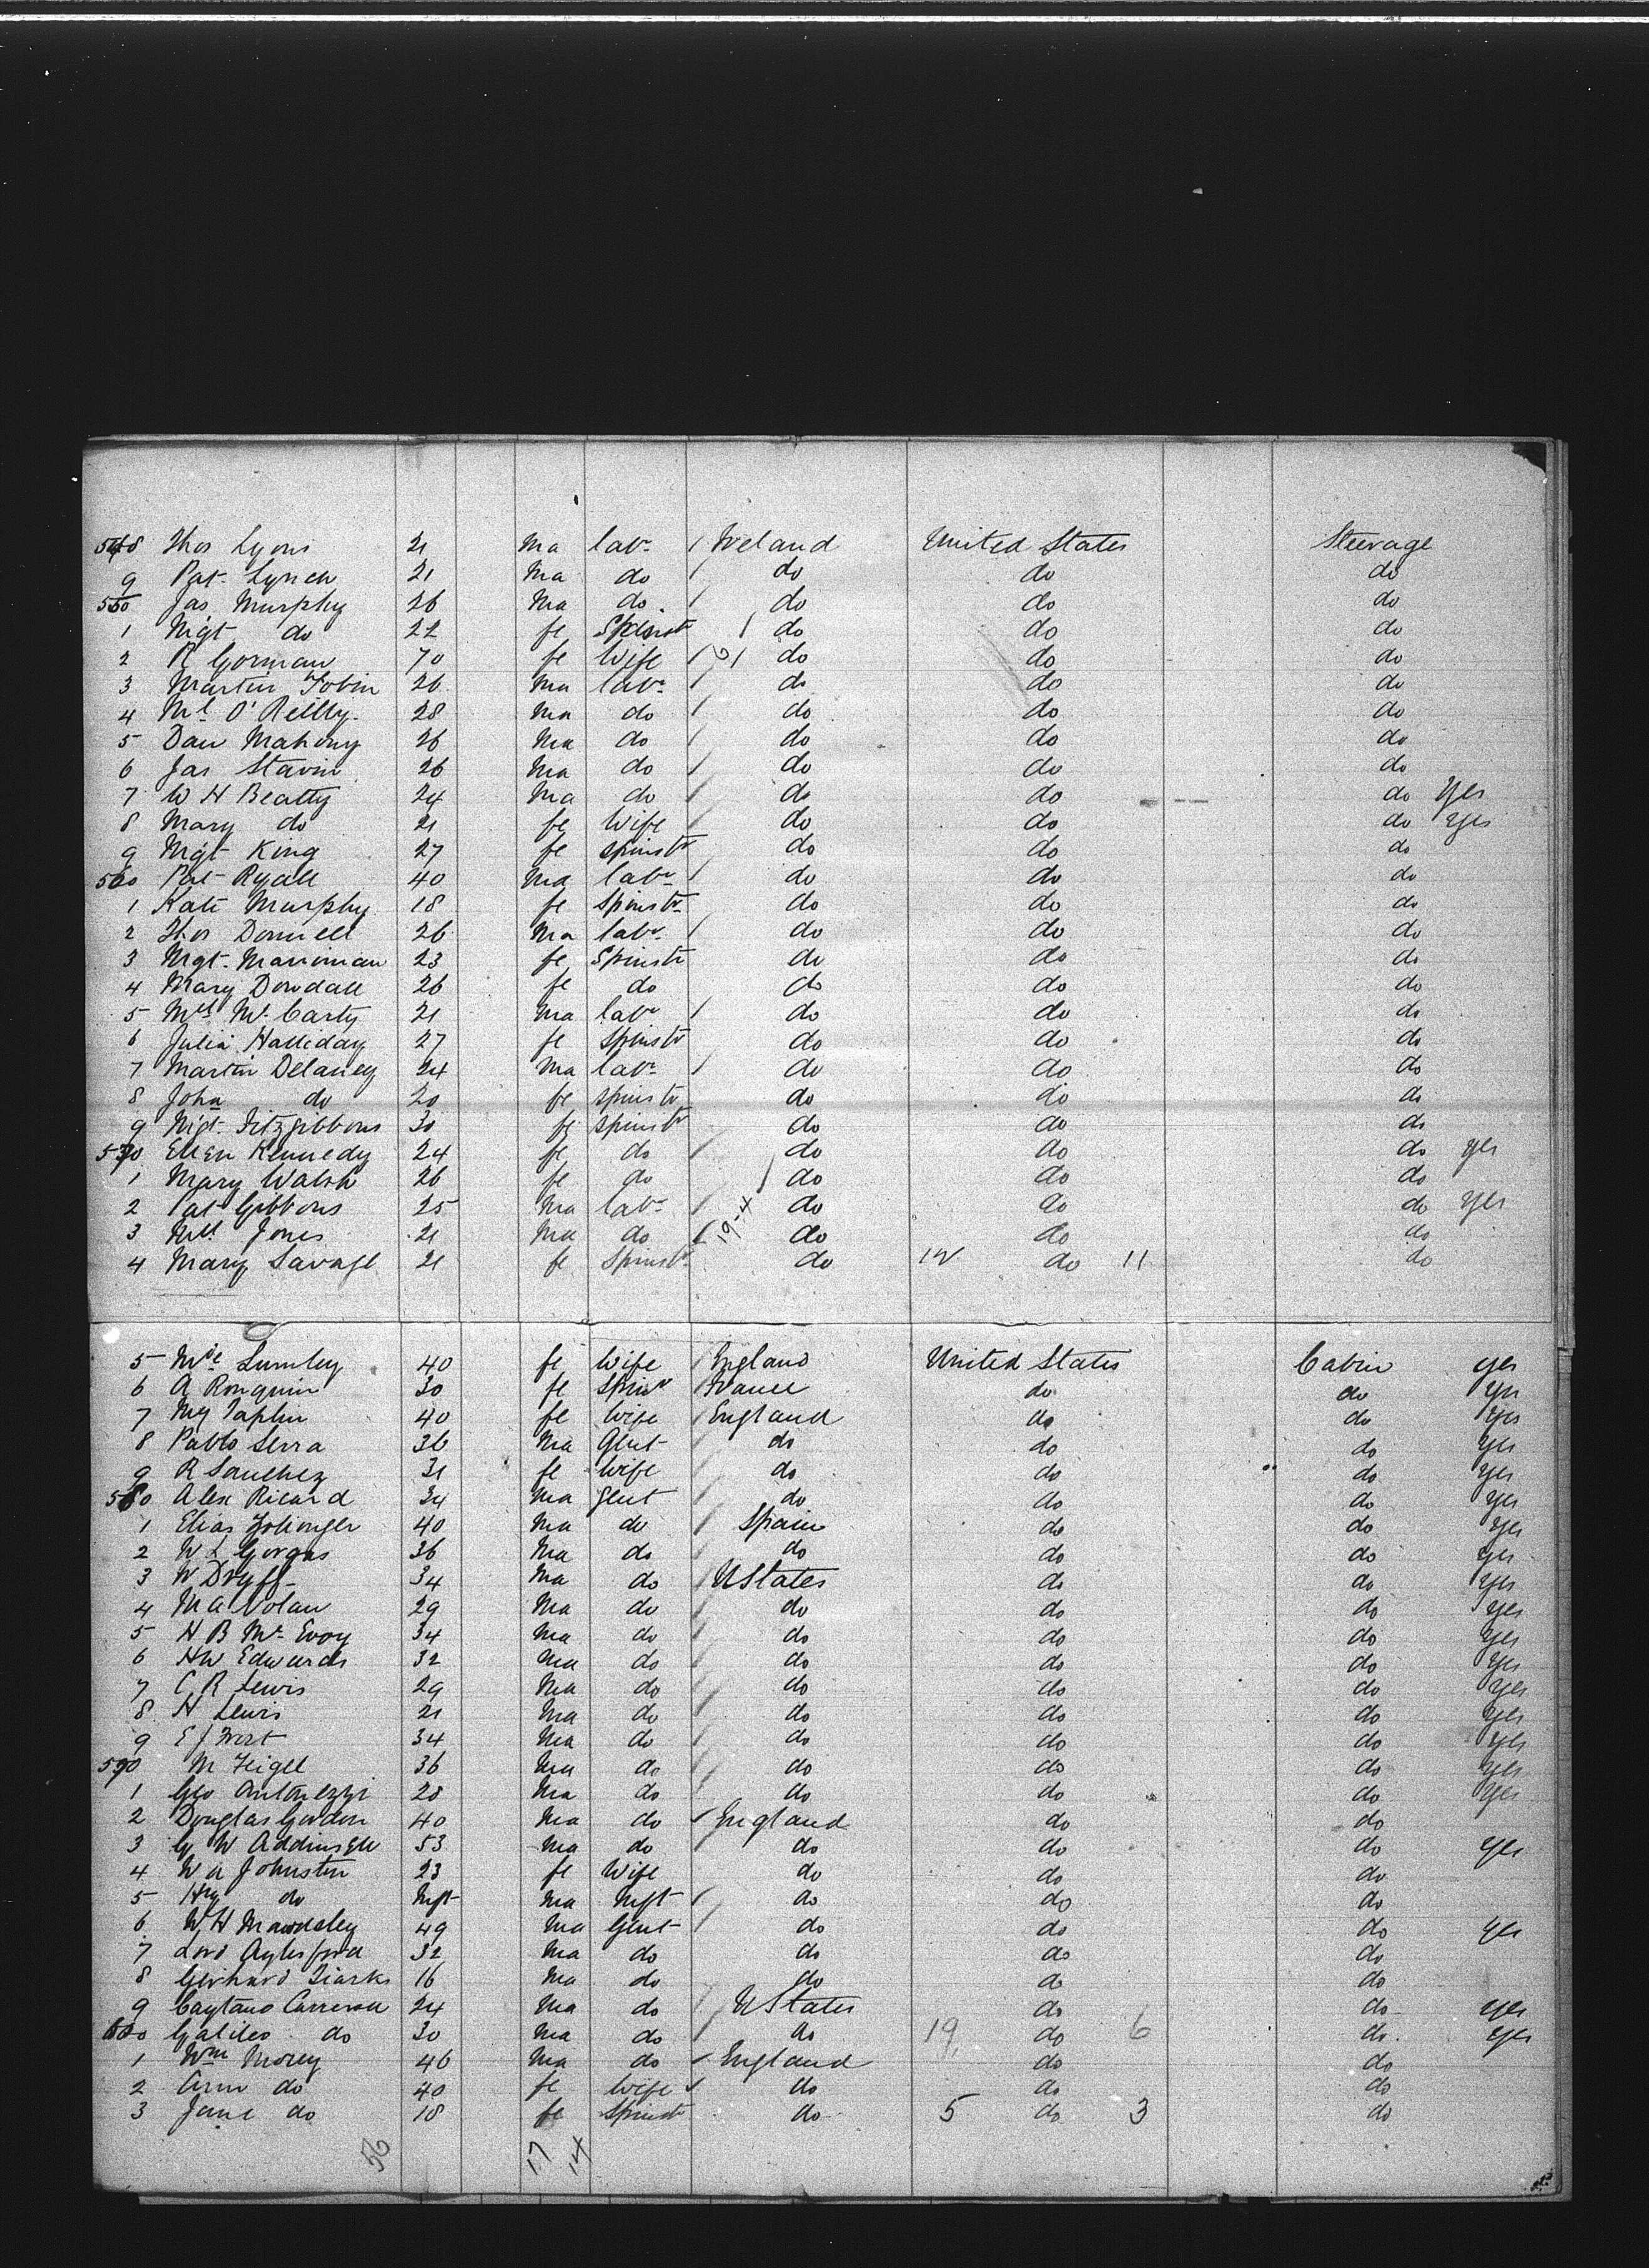 548 Thos Lyons 21 Ma labr / Ireland United States Steerage
9 Pat Lynch 21 Ma do / do do do
550 Jas Murphy 26 Ma do / do do do
1 Mgt do 22 fe Spinstr / do do do
2 R Gorman 70 fe Wife / do do do
3 Martin Tobin 26 Ma labr / do do do
4 Ml O'Reilly 28 Ma do / do do do
5 Dan Mahony 26 Ma do / do do do
6 Jas Stavin 26 Ma do / do do do
7 W H Beatty 24 Ma do / do do do Yes
8 Mary do 21 fe Wife / do do do Yes
9 Mgt King 27 fe spinstr do do do
560 Pat Ryall 40 Ma labr / do do do
1 Kate Murphy 18 fe Spinstr do do do
2 Thos Donnell 26 Ma labr / do do do
3 Mgt 23 fe Spinstr do do do
4 Mary Dowdall 26 fe do do do do
5 Mcl McCarty 21 Ma labr / do do do
6 Julia Halliday 27 fe Spinstr do do do
7 Martin Delaney 24 Ma labr / do do do
8 Joha do 20 fe spinstr do do do
9 Mgt Fitzgibbons 30 fe spinstr do do do
570 Ellen Kennedy 24 fe do / do do do yes
1 Mary Walsh 26 fe do / do do do
2 Pat Gibbons 25 Ma labr / do do do yes
3 Mcl Jones 21 Ma do / 19-4 do do do
4 Mary Savage 21 fe Spinstr do 12 do 11 do
5 Mde Lumley 40 fe Wife / England United States Cabin yes
6 A Ronquin 30 fe Spinr / France do do yes
7 My Taplin 40 fe Wife / England do do yes
8 Pablo Serra 36 Ma Glut / do do do yes
9 R Sanchez 31 fe Wife / do do do yes
580 Alex Ricard 34 Ma Glut / do do do yes
1 Elias Zolinger 40 Ma do / Spain do do yes
2 W L Gorgas 36 Ma do / do do do yes
3 W 34 Ma do / UStates do do yes
4 M A Nolan 29 Ma do / do do do yes
5 H B McEvoy 34 Ma do / do do do yes
6 HW Edwards 32 Ma do / do do do yes
7 C R Lewis 29 Ma do / do do do yes
8 H Lewis 21 Ma do / do do do yes
9 E J West 34 Ma do / do do do yes
590 M Feigel 36 Ma do / do do do yes
1 Geo 28 Ma do / do do do yes
2 Douglas Gordon 40 Ma do / England do do
3 G W 53 Ma do / do do do yes
4 W A Johnston 23 fe Wife do do do
5 Hry do Inft Ma Inft / do do do
6 W H Mawdsley 49 Ma Glut / do do do yes
7 Lord Aylesford 32 Ma do do do do
8 Gerhard Tiarks 16 Ma do do do do
9 Caytano Carrera 24 Ma do / UStates do do yes
600 Galileo do 30 Ma do / do 19 do 6 do yes
1 Wm Morey 46 Ma do / England do do
2 Ann do 40 fe Wife / do do do
3 Jane do 18 fe Spinstr do 5 do 3 do
56 17 14